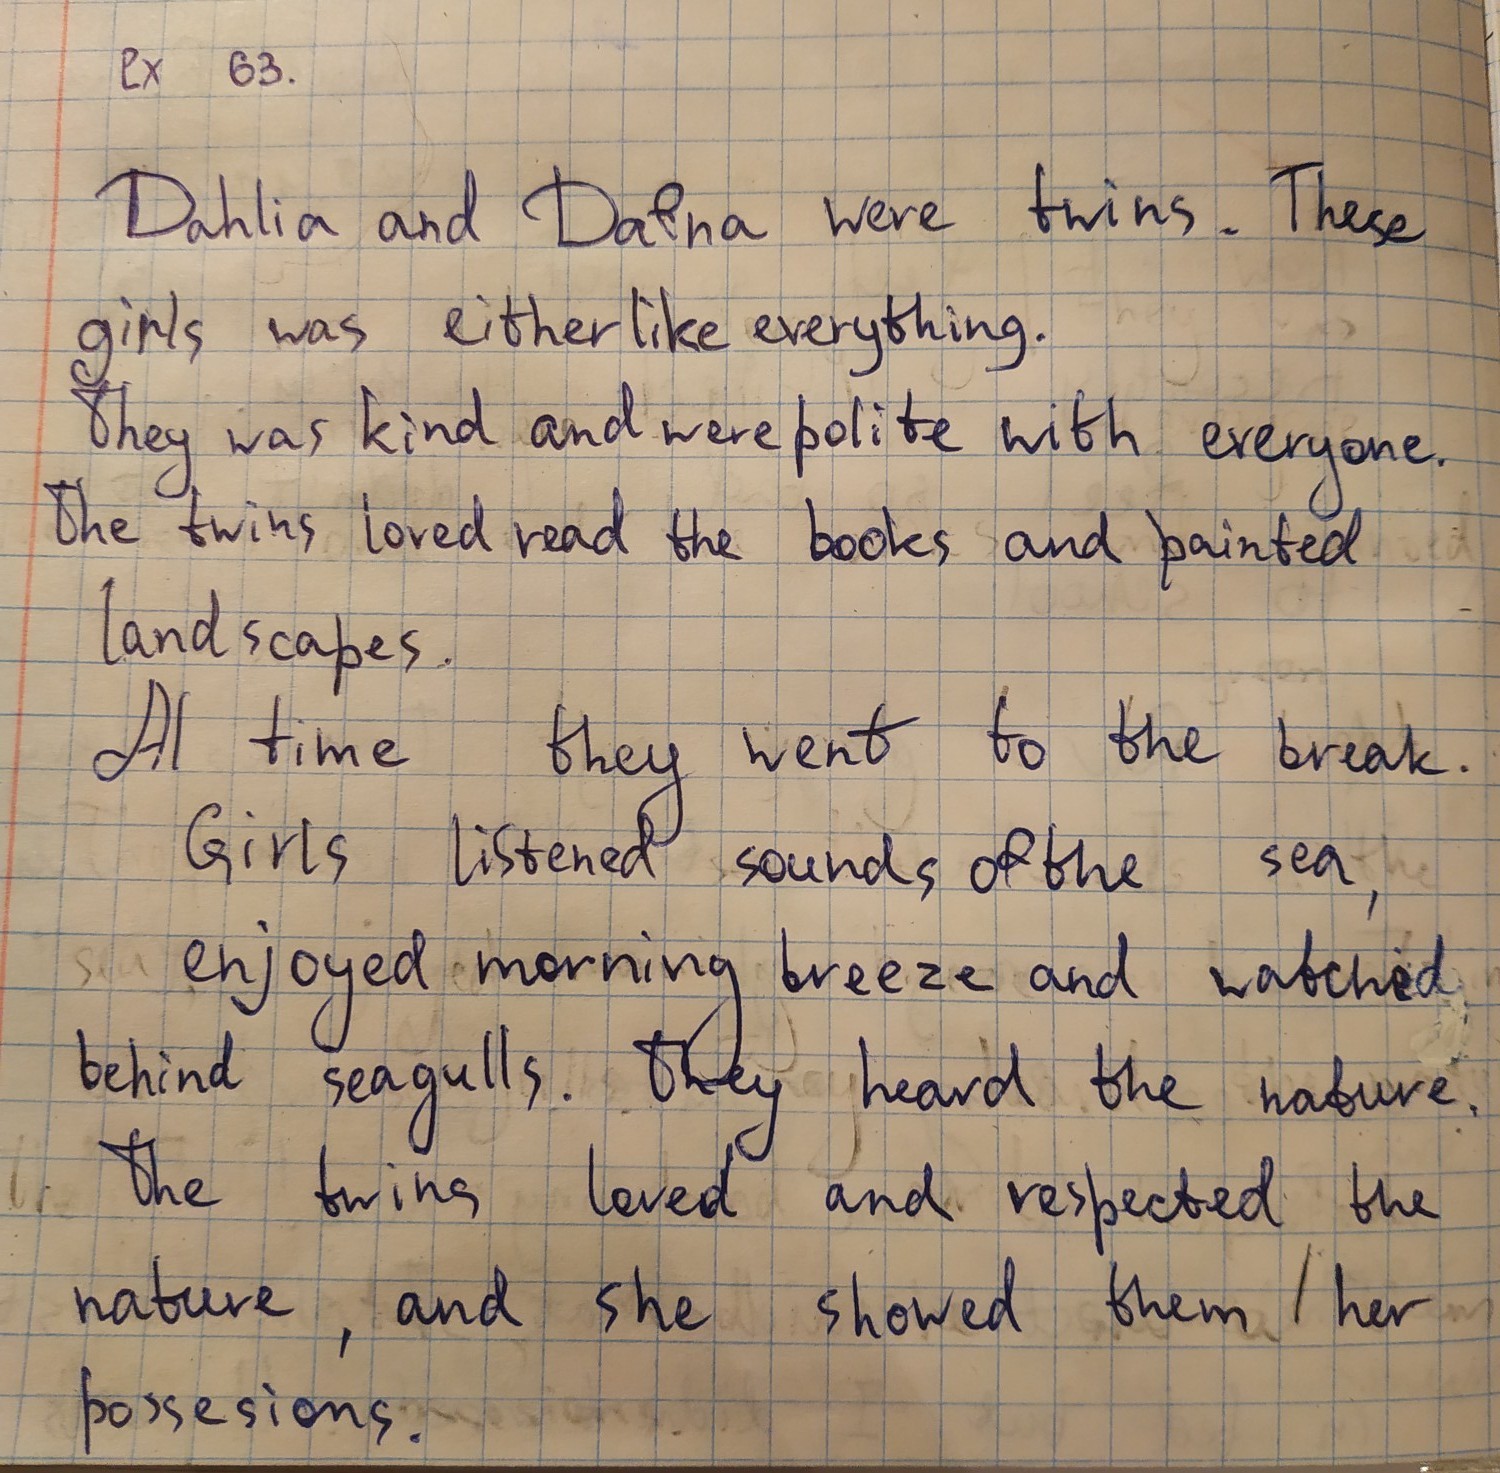 ex 63.
Dahlia and Dafna were twins. These
girls was either like everything.
They was kind and were polite with everyone.
The twins loved read the books and painted
landscapes.
Al time they went to the break.
Girls listened sounds of the sea,
enjoyed morning breeze and watched
behind seagulls. They heard the nature.
The twins loved and respected the
nature, and she showed them / her
possesions.